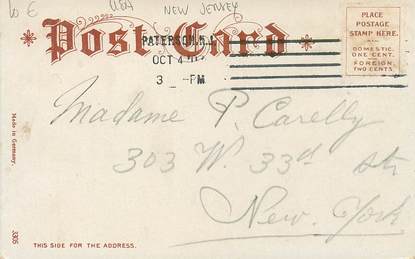 10 E USA NEW JERSEY
Post Card
PATERSON, N.J.
OCT 4
3 - PM
PLACE
POSTAGE
STAMP HERE.
DOMESTIC.
ONE CENT.
FOREIGN
TWO CENTS.
Madame P. Carelly
303 W. 33rd str
New-York
Made in Germany.
3305
THIS SIDE FOR THE ADDRESS.